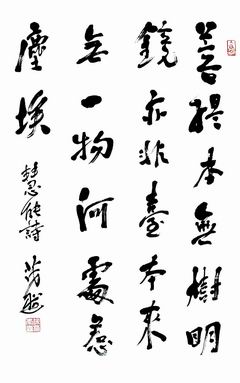 菩提本無樹明
鏡亦非臺本來
無一物何處惹
塵埃
慧能詩